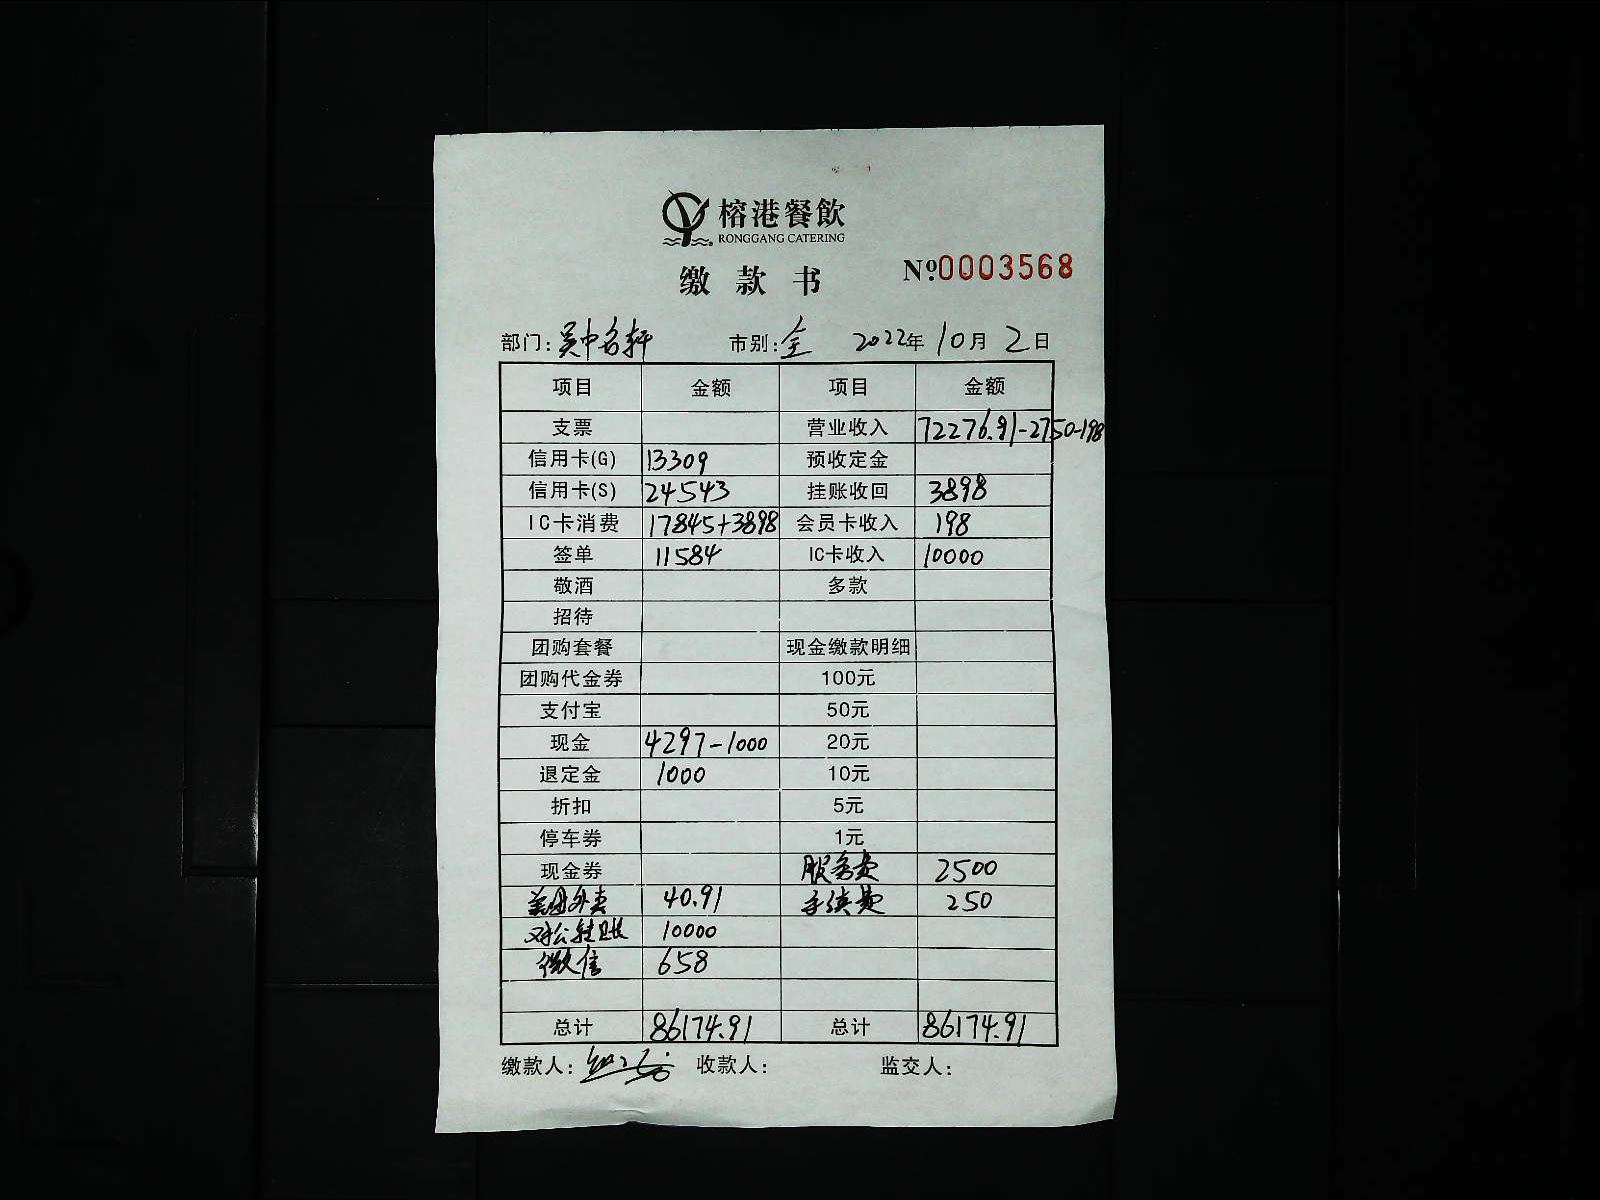 榕港餐飲
RONGGANG CATERING
缴款书
№0003568
部门:吴中名轩 市别:全 2022年10月2日
项目 金额 项目 金额
支票 营业收入 72276.91-2750-198
信用卡(G) 13309 预收定金
信用卡(S) 24543 挂账收回 3898
IC卡消费 17845+3898 会员卡收入 198
签单 11584 IC卡收入 10000
敬酒 多款
招待
团购套餐 现金缴款明细
团购代金券 100元
支付宝 50元
现金 4297-1000 20元
退定金 1000 10元
折扣 5元
停车券 1元
现金券 服务费 2500
美团外卖 40.91 手续费 250
对公转账 10000
微信 658
总计 86174.91 总计 86174.91
缴款人: 收款人: 监交人: